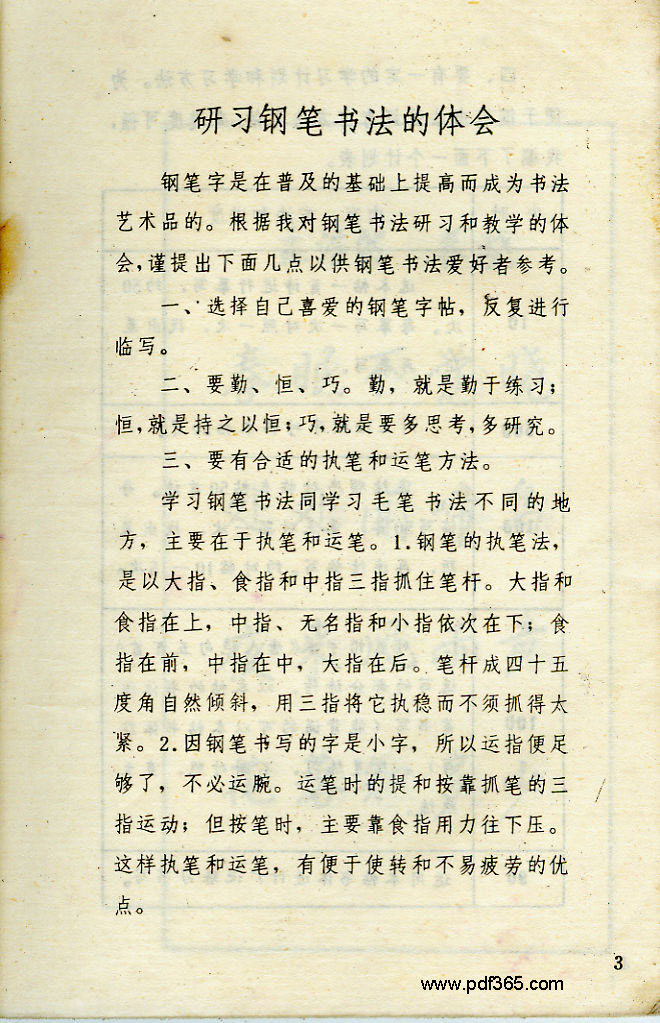 研习钢笔书法的体会
钢笔字是在普及的基础上提高而成为书法
艺术品的。根据我对钢笔书法研习和教学的体
会,谨提出下面几点以供钢笔书法爱好者参考。
一、选择自己喜爱的钢笔字帖，反复进行
临写。
二、要勤、恒、巧。勤，就是勤于练习；
恒,就是持之以恒；巧,就是要多思考,多研究。
三、要有合适的执笔和运笔方法。
学习钢笔书法同学习毛笔书法不同的地
方，主要在于执笔和运笔。1.钢笔的执笔法，
是以大指、食指和中指三指抓住笔杆。大指和
食指在上，中指、无名指和小指依次在下；食
指在前，中指在中，大指在后。笔杆成四十五
度角自然倾斜，用三指将它执稳而不须抓得太
紧。2.因钢笔书写的字是小字，所以运指便足
够了，不必运腕。运笔时的提和按靠抓笔的三
指运动；但按笔时，主要靠食指用力往下压。
这样执笔和运笔，有便于使转和不易疲劳的优
点。
3
www.pdf365.com